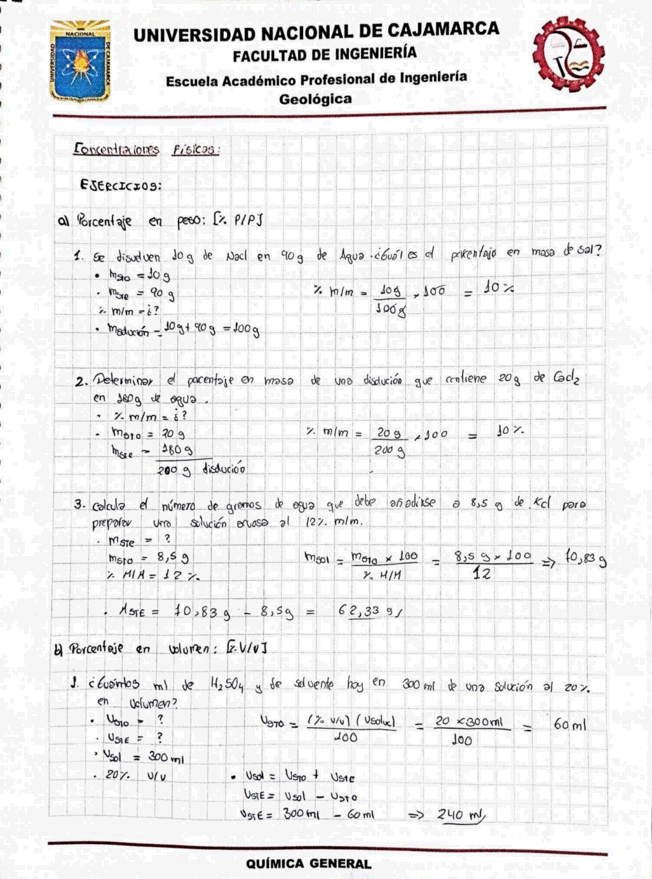 UNIVERSIDAD NACIONAL DE CAJAMARCA
FACULTAD DE INGENIERÍA
Escuela Académico Profesional de Ingeniería
Geológica
NACIONAL
UNIVERSIDAD
DE CAJAMARCA
Concentraciones Físicas:
EJERCICIOS:
a) Porcentaje en peso: [% P/P]
1. Se disuelven 10g de Nacl en 90g de Agua. ¿Cuál es el porcentaje en masa de sal?
• msto = 10g
• mste = 90 g
% m/m = ¿?
• msolución = 10g + 90g = 100g
% m/m = 10g / 100g × 100 = 10%
2. Determinar el porcentaje en masa de una disolución que contiene 20g de CaCl2
en 180g de agua.
• % m/m = ¿?
• msto = 20 g
mste = 180 g
200 g disolución
% m/m = 20 g / 200 g × 100 = 10%
3. Calcula el número de gramos de agua que debe añadirse a 8,5 g de Kcl para
preparar una solución acuosa al 12% m/m.
• mste = ?
msto = 8,5 g
% M/M = 12 %
msol = msto × 100 / % M/M = 8,5 g × 100 / 12 => 70,83 g
• MSTE = 70,83 g - 8,5g = 62,33 g
b) Porcentaje en volumen: [% V/V]
1. ¿Cuántos ml de H2SO4 y de solvente hay en 300 ml de una solución al 20%
en volumen?
• Vsto = ?
• VSTE = ?
• Vsol = 300 ml
• 20% V/V
VSTO = (% V/V) (Vsoluc) / 100 = 20 × 300ml / 100 = 60 ml
• Vsol = VSTO + VSTE
VSTE = Vsol - VSTO
VSTE = 300 ml - 60 ml => 240 ml
QUÍMICA GENERAL